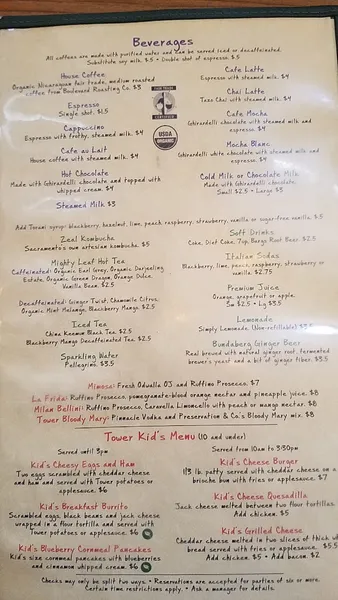 Beverages
All coffees are made with purified water and can be served iced or decaffeinated.
Substitute soy milk. $.5 • Double shot of espresso. $.5
House Coffee
Organic Nicaraguan fair trade, medium roasted
coffee from Boulevard Roasting Co. $3
Espresso
Single shot. $1.5
Cappuccino
Espresso with frothy, steamed milk. $4
Cafe au Lait
House coffee with steamed milk. $4
Hot Chocolate
Made with Ghirardelli chocolate and topped with
whipped cream. $4
Steamed Milk $3
FAIR TRADE
CERTIFIED
USDA
ORGANIC
Cafe Latte
Espresso with steamed milk. $4
Chai Latte
Tazo Chai with steamed milk. $4
Cafe Mocha
Ghirardelli chocolate with steamed milk and
espresso. $4
Mocha Blanc
Ghirardelli white chocolate with steamed milk and
espresso. $4
Cold Milk or Chocolate Milk
Made with Ghirardelli chocolate.
Small $2.5 • Large $3
Add Torani syrup: blackberry, hazelnut, lime, peach, raspberry, strawberry, vanilla or sugar-free vanilla. $.5
Zeal Kombucha
Sacramento's own artesian kombucha. $5
Mighty Leaf Hot Tea
Caffeinated: Organic Earl Grey, Organic Darjeeling
Estate, Organic Green Dragon, Orange Dulce,
Vanilla Bean. $2.5
Decaffeinated: Ginger Twist, Chamomile Citrus,
Organic Mint Melange, Blackberry Mango. $2.5
Iced Tea
China Keemun Black Tea. $2.5
Blackberry Mango Decaffeinated Tea. $2.5
Sparkling Water
Pellegrino. $3.5
Soft Drinks
Coke, Diet Coke, 7up, Barqs Root Beer. $2.5
Italian Sodas
Blackberry, lime, peach, raspberry, strawberry or
vanilla. $2.75
Premium Juice
Orange, grapefruit or apple.
Sm $2.5 • Lg $3.5
Lemonade
Simply Lemonade. (Non-refillable)
Bundaberg Ginger Beer
Real brewed with natural ginger root, fermented
brewer's yeast and a bit of ginger fiber. $3.5
Mimosa: Fresh Odwalla OJ and Ruffino Prosecco. $7
La Frida: Ruffino Prosecco, pomegranate-blood orange nectar and pineapple juice. $8
Milan Bellini: Ruffino Prosecco, Caravella Limoncello with peach or mango nectar. $8
Tower Bloody Mary: Pinnacle Vodka and Preservation & Co's Bloody Mary mix. $8
Tower Kid's Menu (10 and under)
Served until 3pm
Kid's Cheesy Eggs and Ham
Two eggs scrambled with cheddar cheese
and ham and served with Tower potatoes or
applesauce. $6
Kid's Breakfast Burrito
Scrambled eggs, black beans and jack cheese
wrapped in a flour tortilla and served with
Tower potatoes or applesauce. $6
Kid's Blueberry Cornmeal Pancakes
Kid's size cornmeal pancakes with blueberries
and cinnamon whipped cream. $6
Served from 10am to 3:30pm
Kid's Cheese Burger
1/3 lb. patty served with cheddar cheese on a
brioche bun with fries or applesauce. $7
Kid's Cheese Quesadilla
Jack cheese melted between two flour tortillas.
Add chicken. $5
Kid's Grilled Cheese
Cheddar cheese melted in two slices of thick
bread served with fries or applesauce. $5.5
Add chicken. $5 • Add bacon. $2
Checks may only be split two ways. • Reservations are accepted for parties of six or more.
Certain time restrictions apply. • Ask a manager for details.